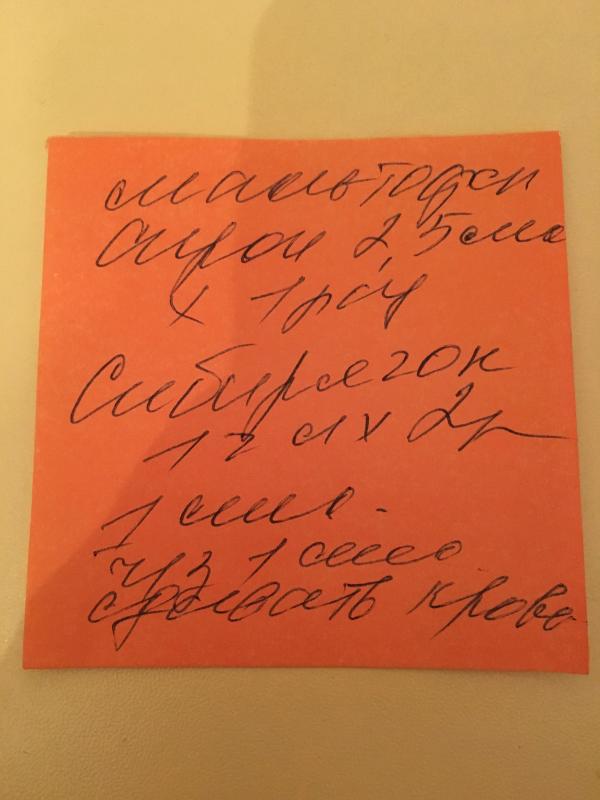 мальтофер
сироп 2,5 мл
х 1 раз
Сибирягон
1 ч л х 2р
1 мес.
чз 1 мес
сдавать кровь